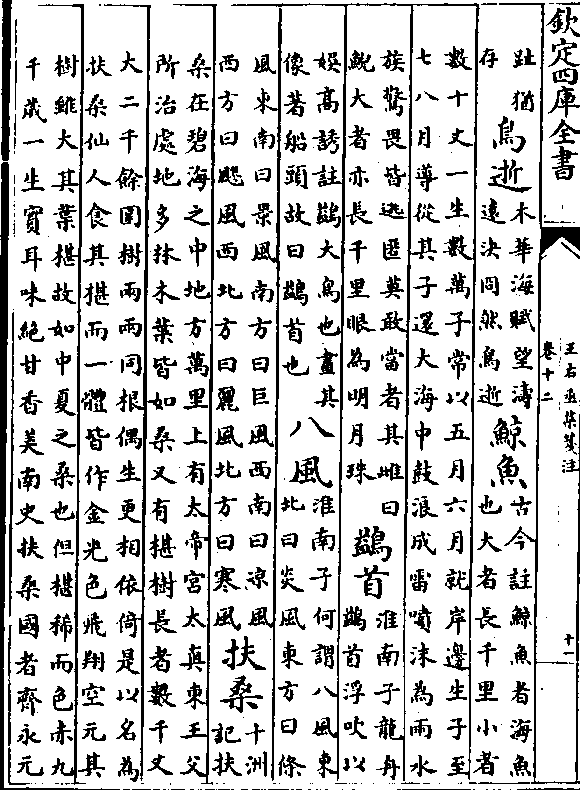 欽定四庫全書
王右丞集箋注
卷十二
十一
趾猶
存
鳥逝
木華海賦望濤
遠決同然鳥逝
鯨魚
古今註鯨魚者海魚
也大者長千里小者
數十丈一生數萬子常以五月六月就岸邊生子至
七八月導從其子還大海中鼓浪成雷噴沫為雨水
族驚畏皆逃匿莫敢當者其雌曰
鯢大者亦長千里眼為明月珠
鷁首
淮南子龍舟
鷁首浮吹以
娛高誘註鷁大鳥也畫其
像著船頭故曰鷁首也
八風
淮南子何謂八風東
北曰炎風東方曰條
風東南曰景風南方曰巨風西南曰涼風
西方曰飂風西北方曰麗風北方曰寒風
扶桑
十洲
記扶
桑在碧海之中地方萬里上有太帝宮太真東王父
所治處地多林木葉皆如桑又有椹樹長者數千丈
大二千餘圍樹兩兩同根偶生更相依倚是以名為
扶桑仙人食其椹而一體皆作金光色飛翔空元其
樹雖大其葉椹故如中夏之桑也但椹稀而色赤九
千歲一生實耳味絕甘香美南史扶桑國者齊永元